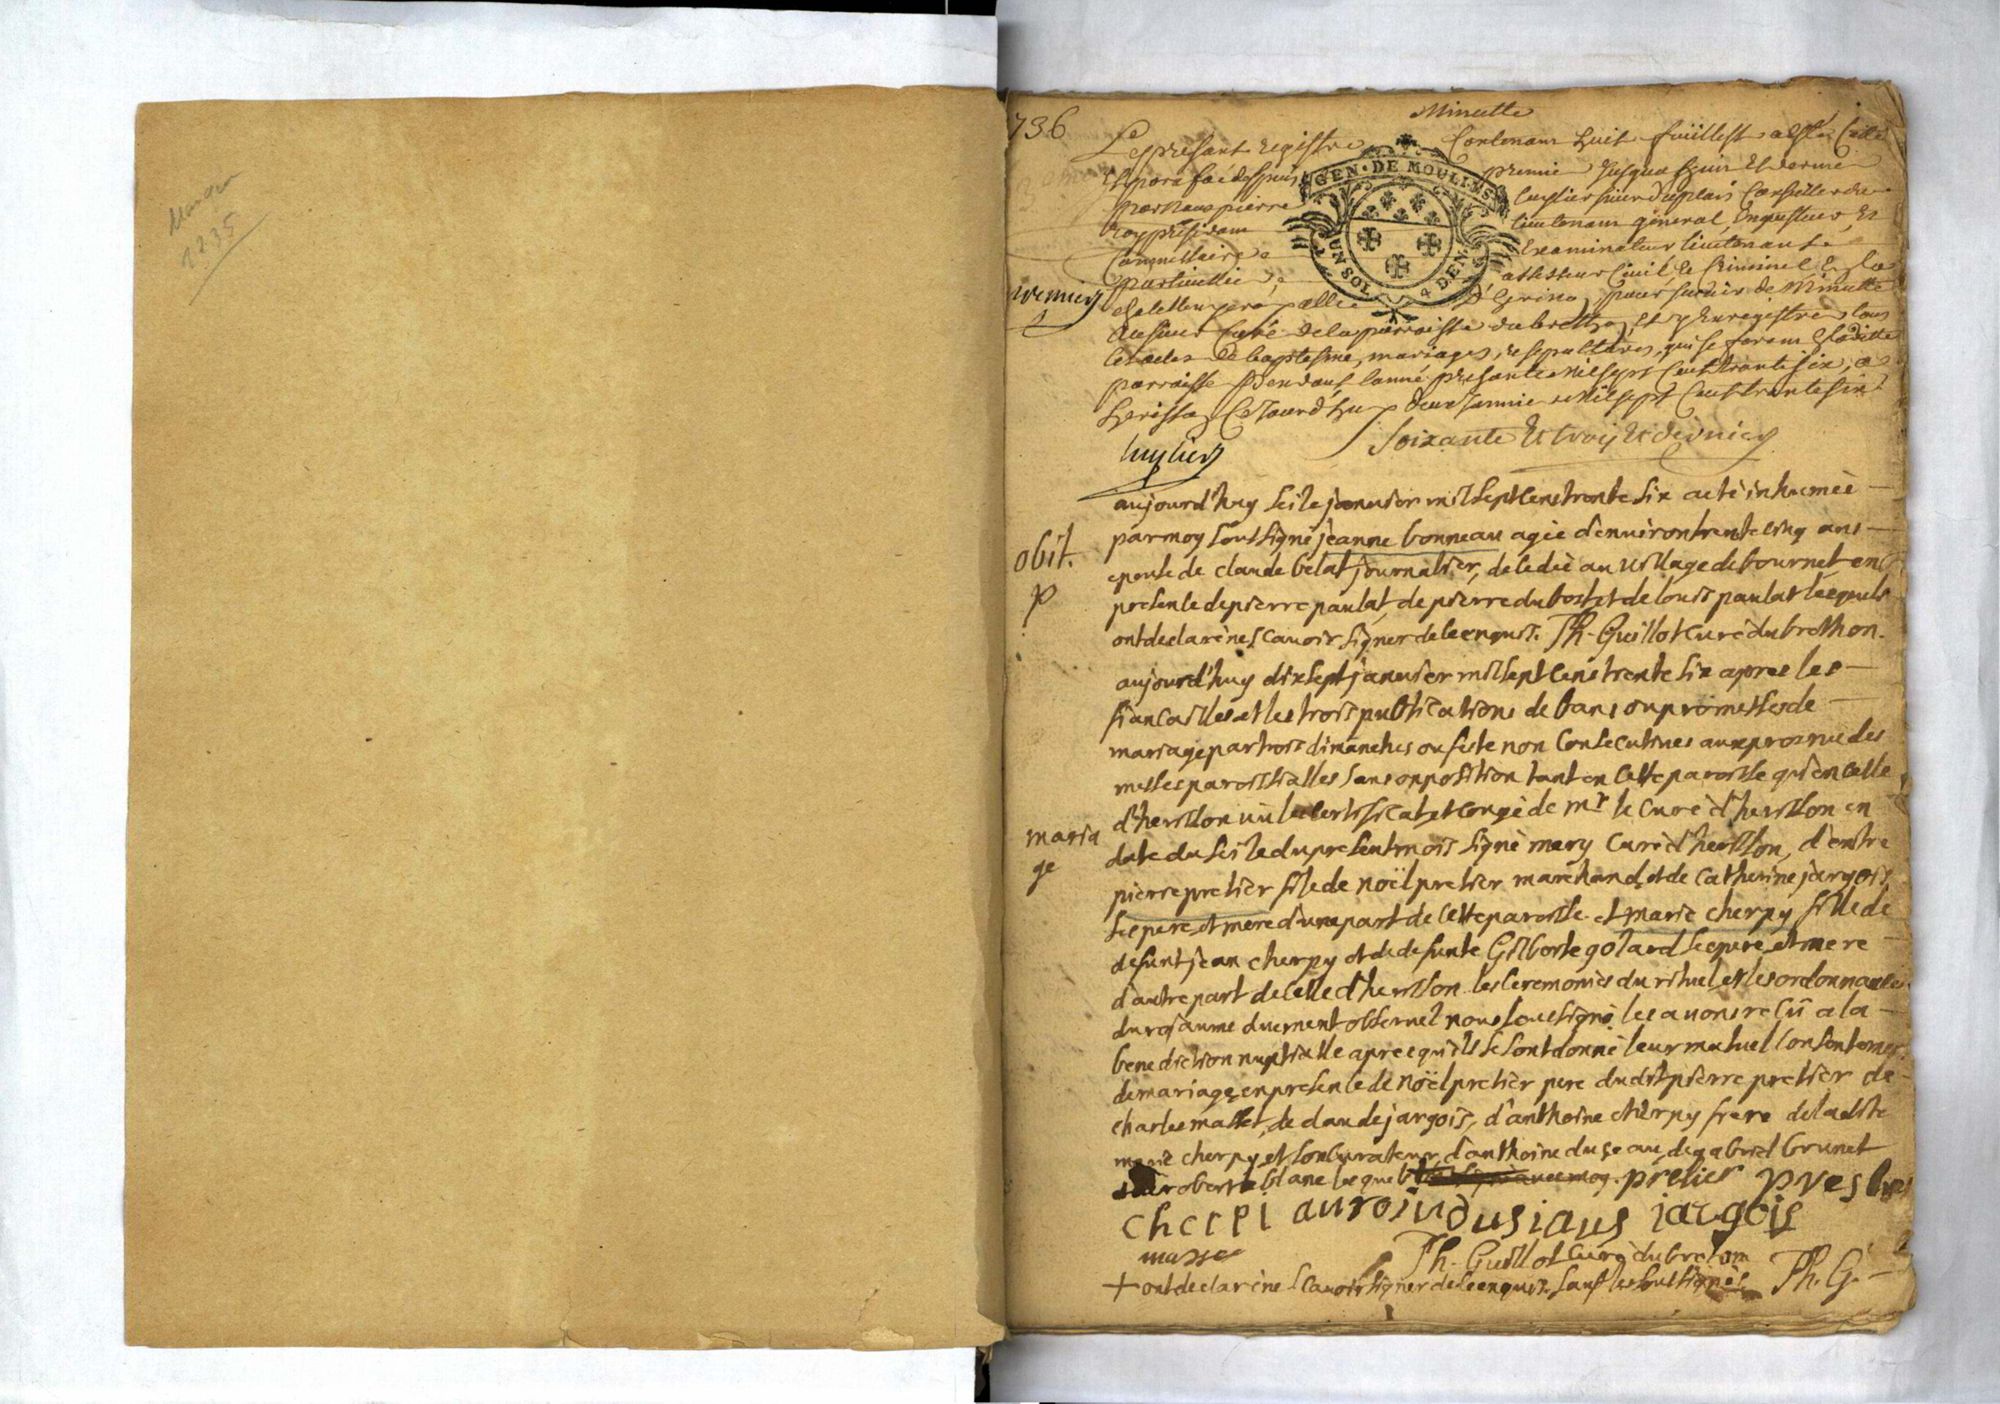 1736
Minutte
Le present registre Contenant huit feüillets a esté Cotté
Et parafé depuis premier Jusqua huit Et dernier
par nous pierre Luylier sieur Conseiller du
Roy president lieutenant général, Enquesteur, Et
Commissaire Examinateur lieutenant
particullier, assesseur Civil, Et Criminel En la
premier
Chatellenye royalle D'herisson, pour servir de Minutte
Au sieur Curé de la parroisse du bretton, Et y Enregistrer tous
les actes De baptesme, mariages, et sepultures, qui se feront En laditte
parroisse pendant lanné presante Mil sept Cent trante six, a
herisson Ce Jourdhuy deux Janvier Mil sept Cent trante six
Soixante Et trois Et dernier
luylier
aujourd'huy seile janvier mil sept cens trente six a eté inhumèe
par moy soussigné jeanne bonneau agèe d'environ trente cinq ans
obit.
epouse de claude belat journalier, decedèe au village de bournet en
presence de pierre paulat, de pierre dubost et de louis paulat lesquels
ont declaré ne scavoir signer de ce enquis. Th. Guillot curè du brethon.
aujourd'huy dix sept janvier mil sept cens trente six apres les
fiançailles et les trois publications de bans ou promesses de
mariage par trois dimanches ou feste non consecutives aux prosnes des
messes paroissialles sans opposition tant en cette paroisse qu'en celle
d'herisson vû le certificat et congè de mr le curè d'herisson en
maria
ge
date du seile du present mois signè mery curè d'herisson, d'entre
pierre pretier fils de noël pretier marchand, et de catherine jargois
ses pere et mere d'une part de cette paroisse et marie cherpy fille de
defunt jean cherpy et de defunte Gilberte golard ses pere et mere
d'autre part de celle d'herisson les ceremonies du rituel et les ordonnances
du royaume duement observeé nous soussignè les avons reçû a la
benediction nuptialle apres qu'ils se sont donnè leur mutuel consentement
de mariage en presence de noël pretier pere dudit pierre pretier de
charles masset, de claude jargois, d'anthoine cherpy frere de ladite
marie cherpy et son curateur, d'anthoine duseau, de gabriel brunet
robert blanc lesquels + prétier
cherpi auroin dusiaus jargois
masse
Th. Guillot curé du breton
+ ont declaré ne scavoir signer de ce enquis sauf les soussignés Th. G.